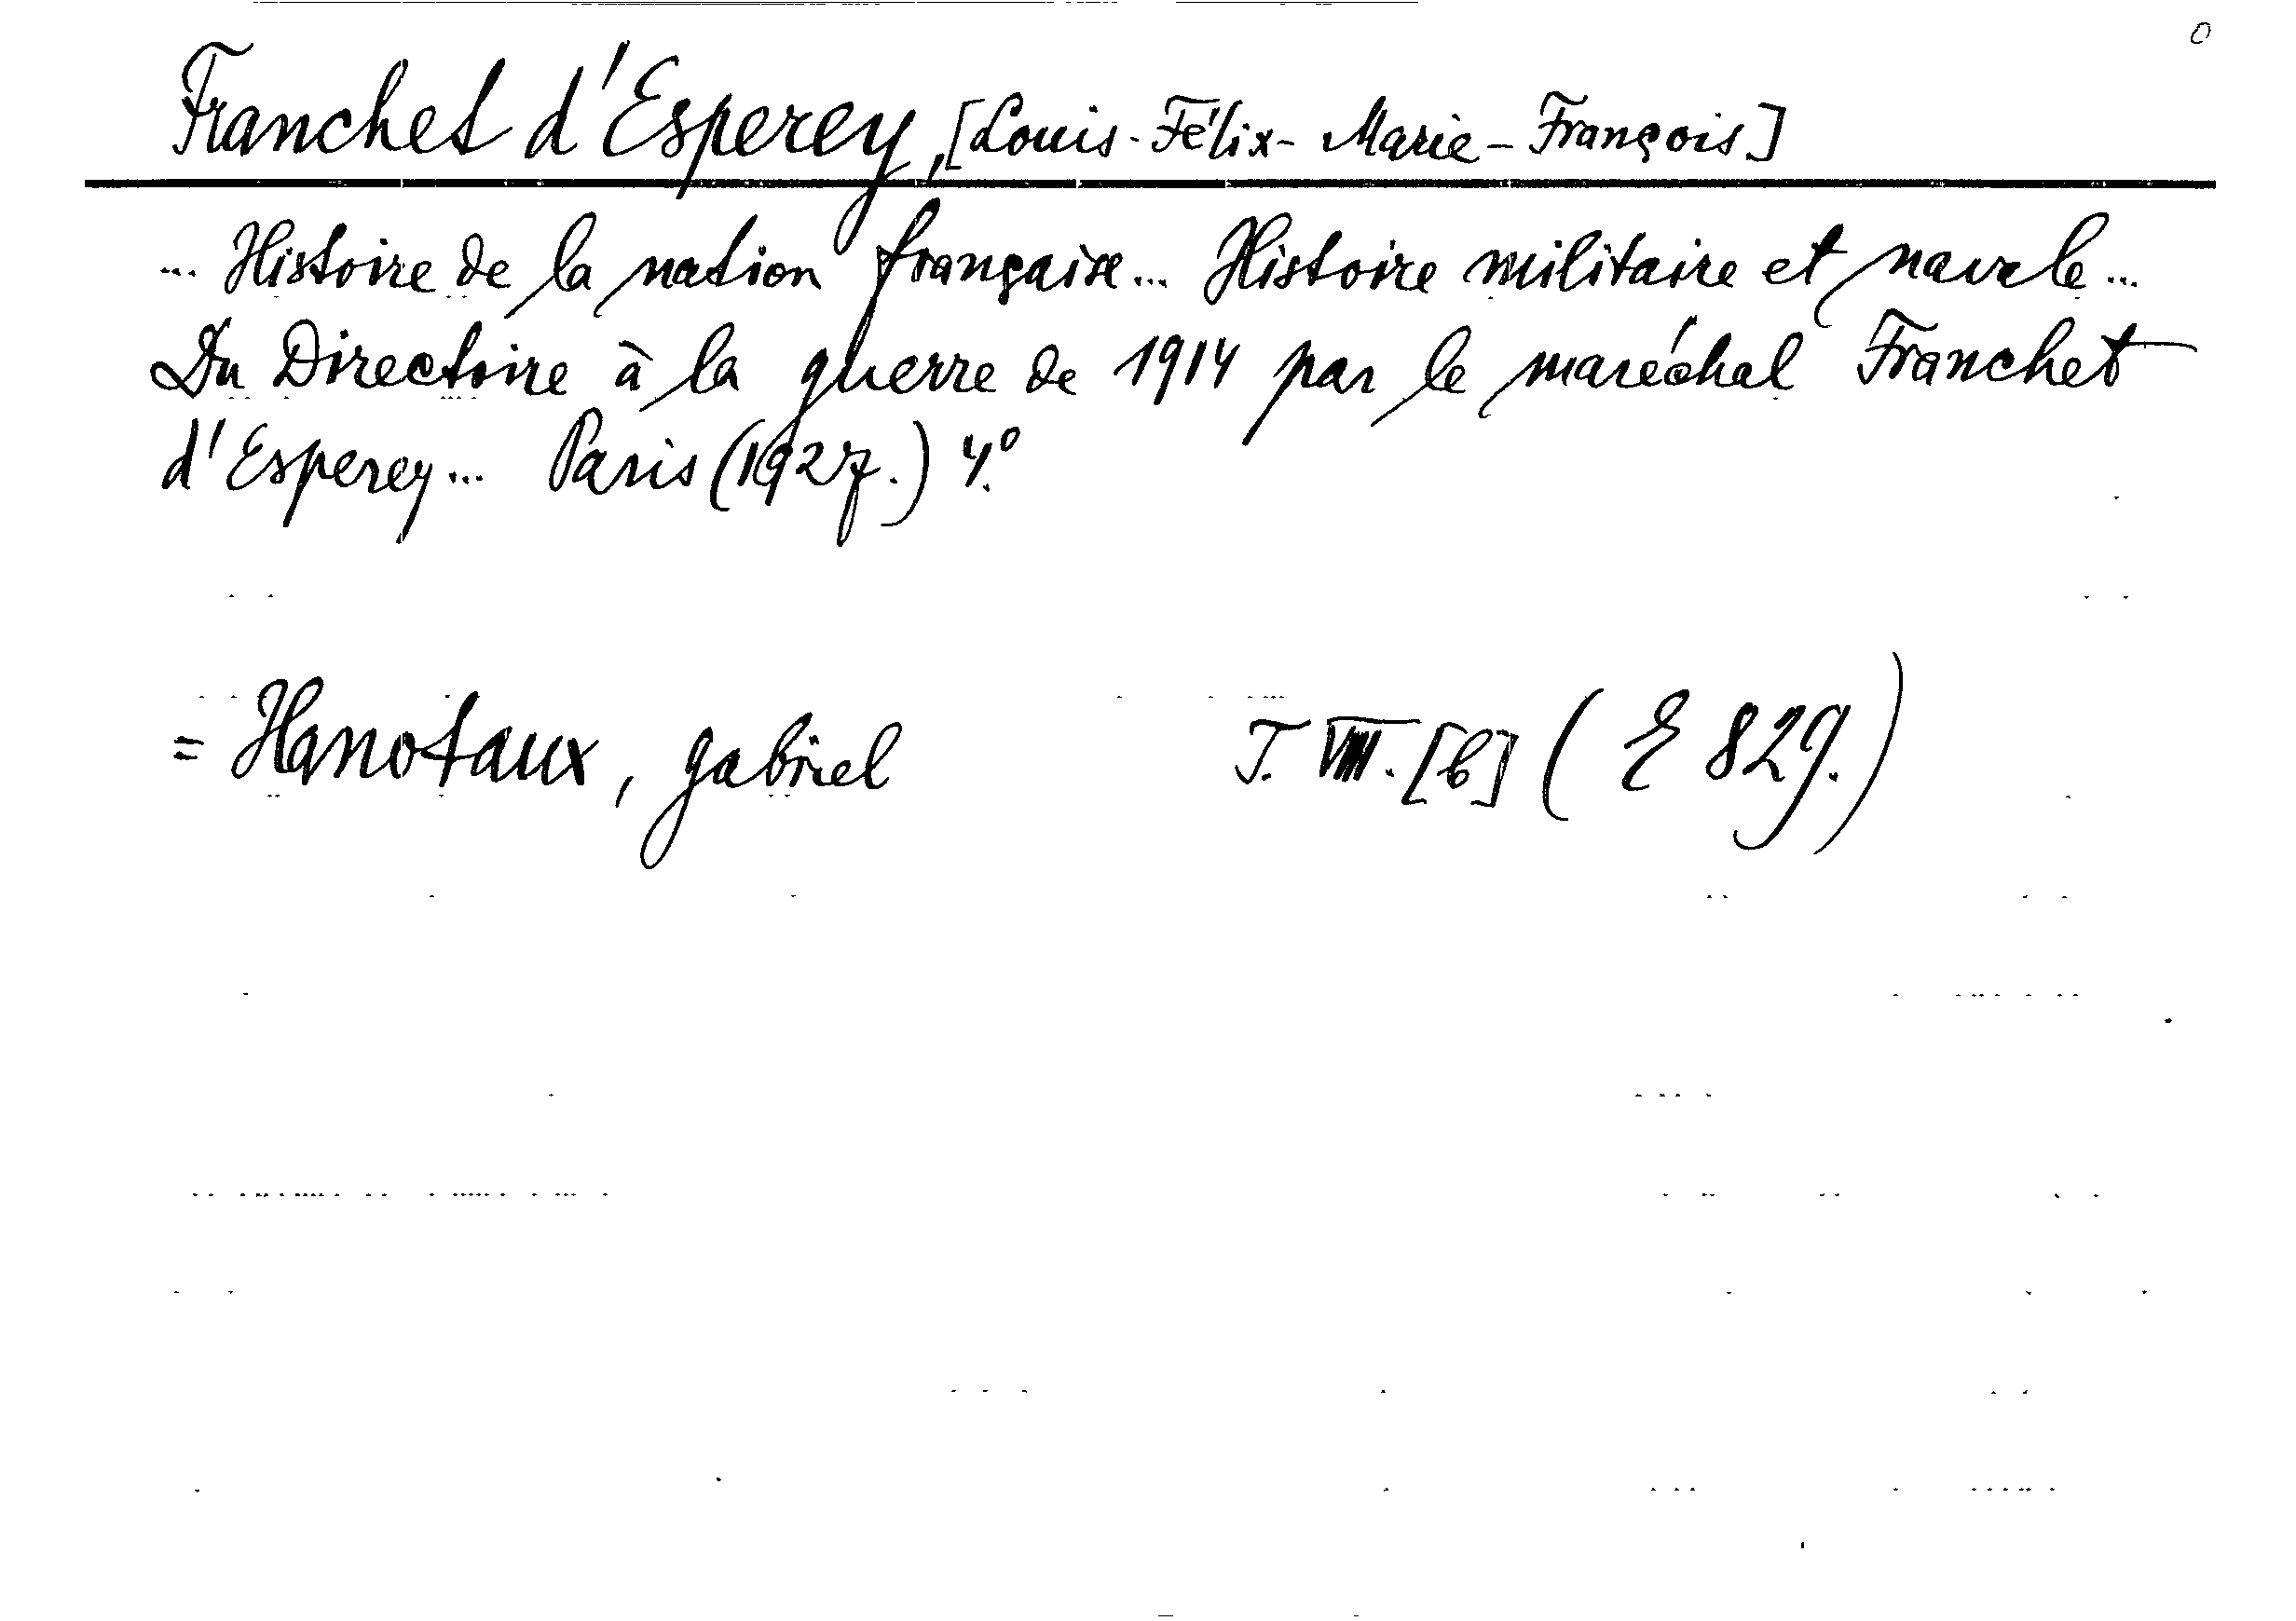 0
Franchet d'Esperey, [Louis-Félix-Marie-François]
... Histoire de la nation française... Histoire militaire et navale...
Du Directoire à la guerre de 1914 par le maréchal Franchet
d'Esperey... Paris (1927.) 4.º
= Hanotaux, Gabriel T. VIII. [b] (E 829.)